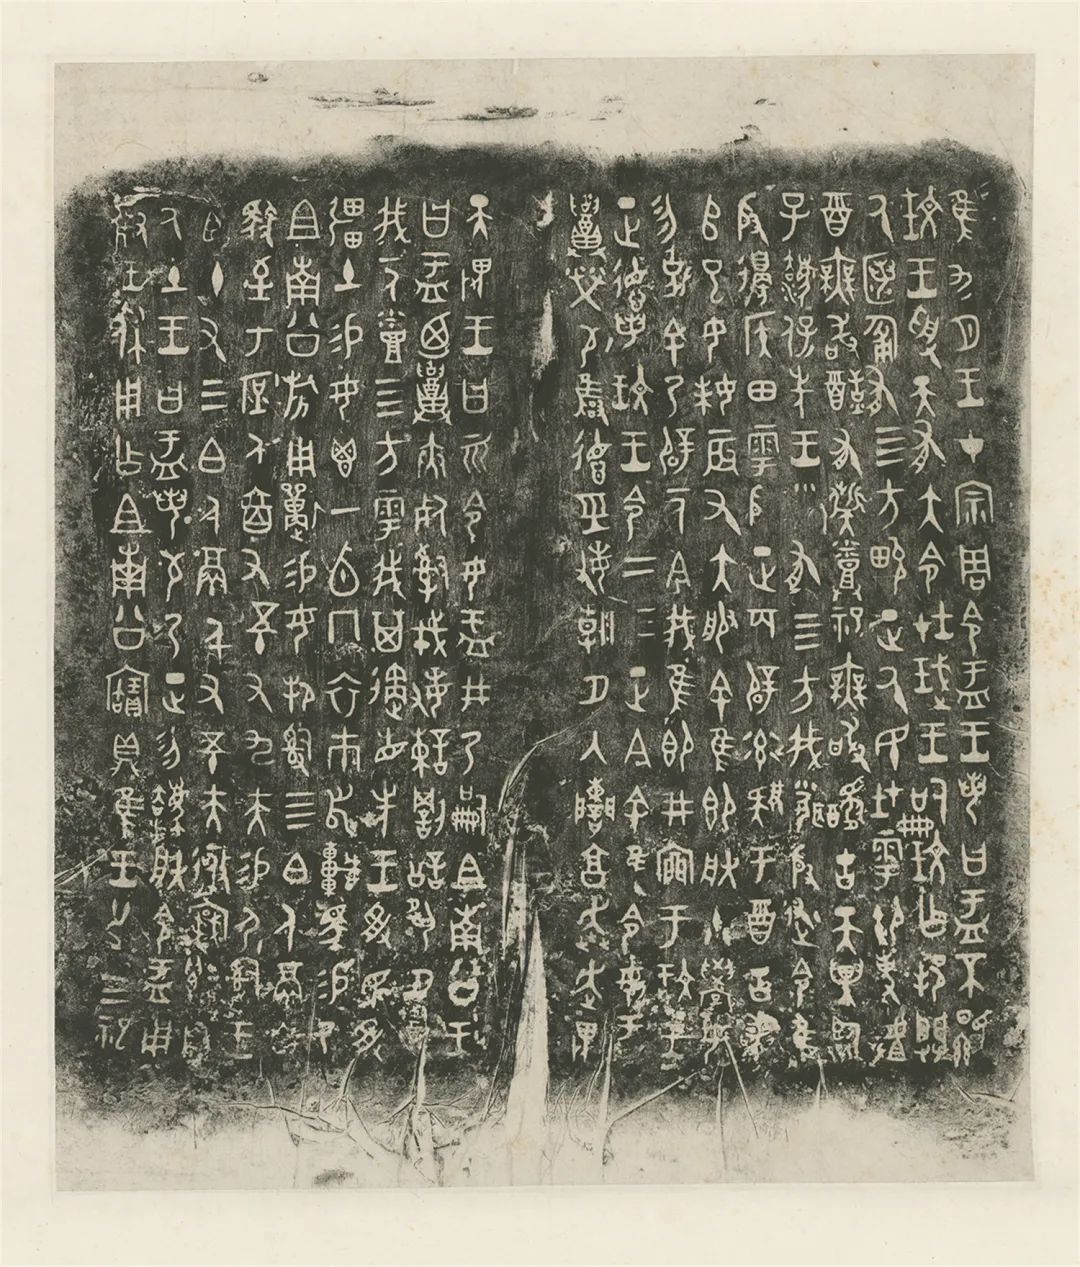 隹九月王才宗周令盂王若曰盂不顯
玟王受天有大令在珷王嗣玟乍邦闢
厥匿匍有四方畯正厥民在雩御事
酉無敢酖有祡蒸祀無敢古天異臨
子灋保先王有四方我聞殷述令隹
殷邊侯田雩殷正百辟率肄于酉古喪
𠂤已女妹辰又大服余隹即朕小學女
勿剋余乃辟一人今我隹即井㐭于玟王
正德若玟王令二三正今余隹令女盂
召榮敬雝德巠敏朝夕入讕享奔走畏
天畏王曰令女盂井乃嗣且南公王
曰盂廼召夾死司戎敏諫罰訟夙夕召
我一人烝四方雩我其遹省先王受民受
疆土易女鬯一卣冂衣巿舄車馬易乃
且南公旂用狩易女邦司四白人鬲自
馭至于庶人六百又五十又九夫易尸司王
臣十又三白人鬲千又五十夫遷自
厥土王曰盂若敬乃正勿灋朕令盂用
對王休用乍且南公寶鼎隹王廿又三祀